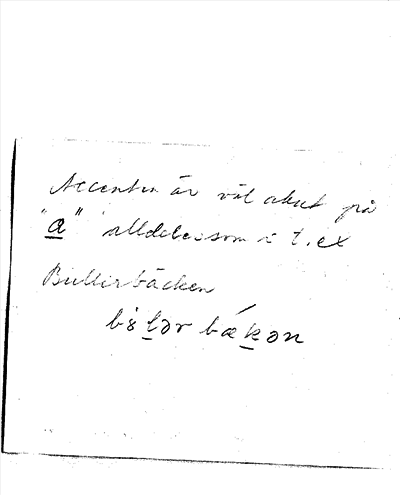 Accenten är väl akut på
"a" alldeles som i t.ex
Bullerbäcken
b8lər bǽkən